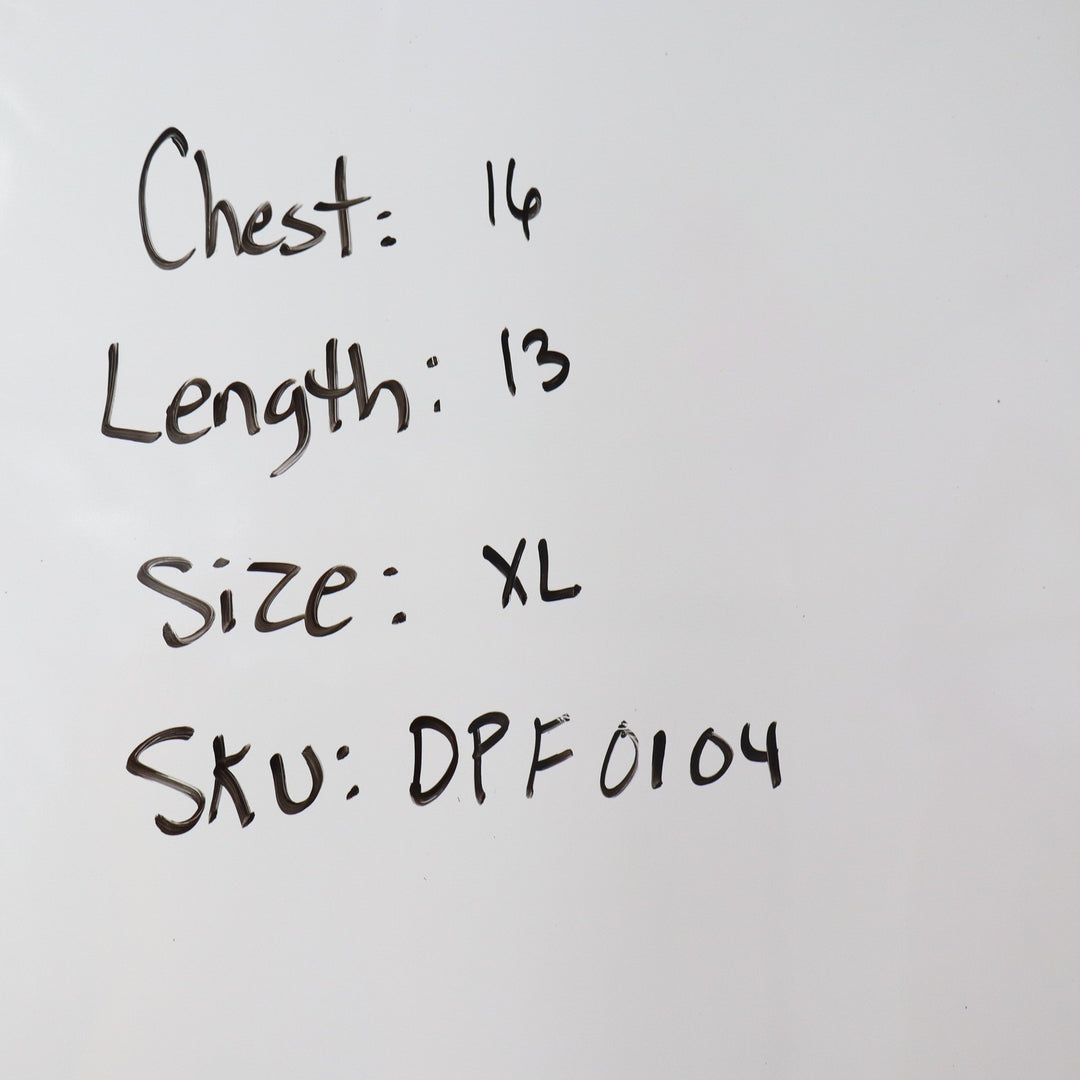 Chest: 16
Length: 13
Size: XL
SKU: DPF0104